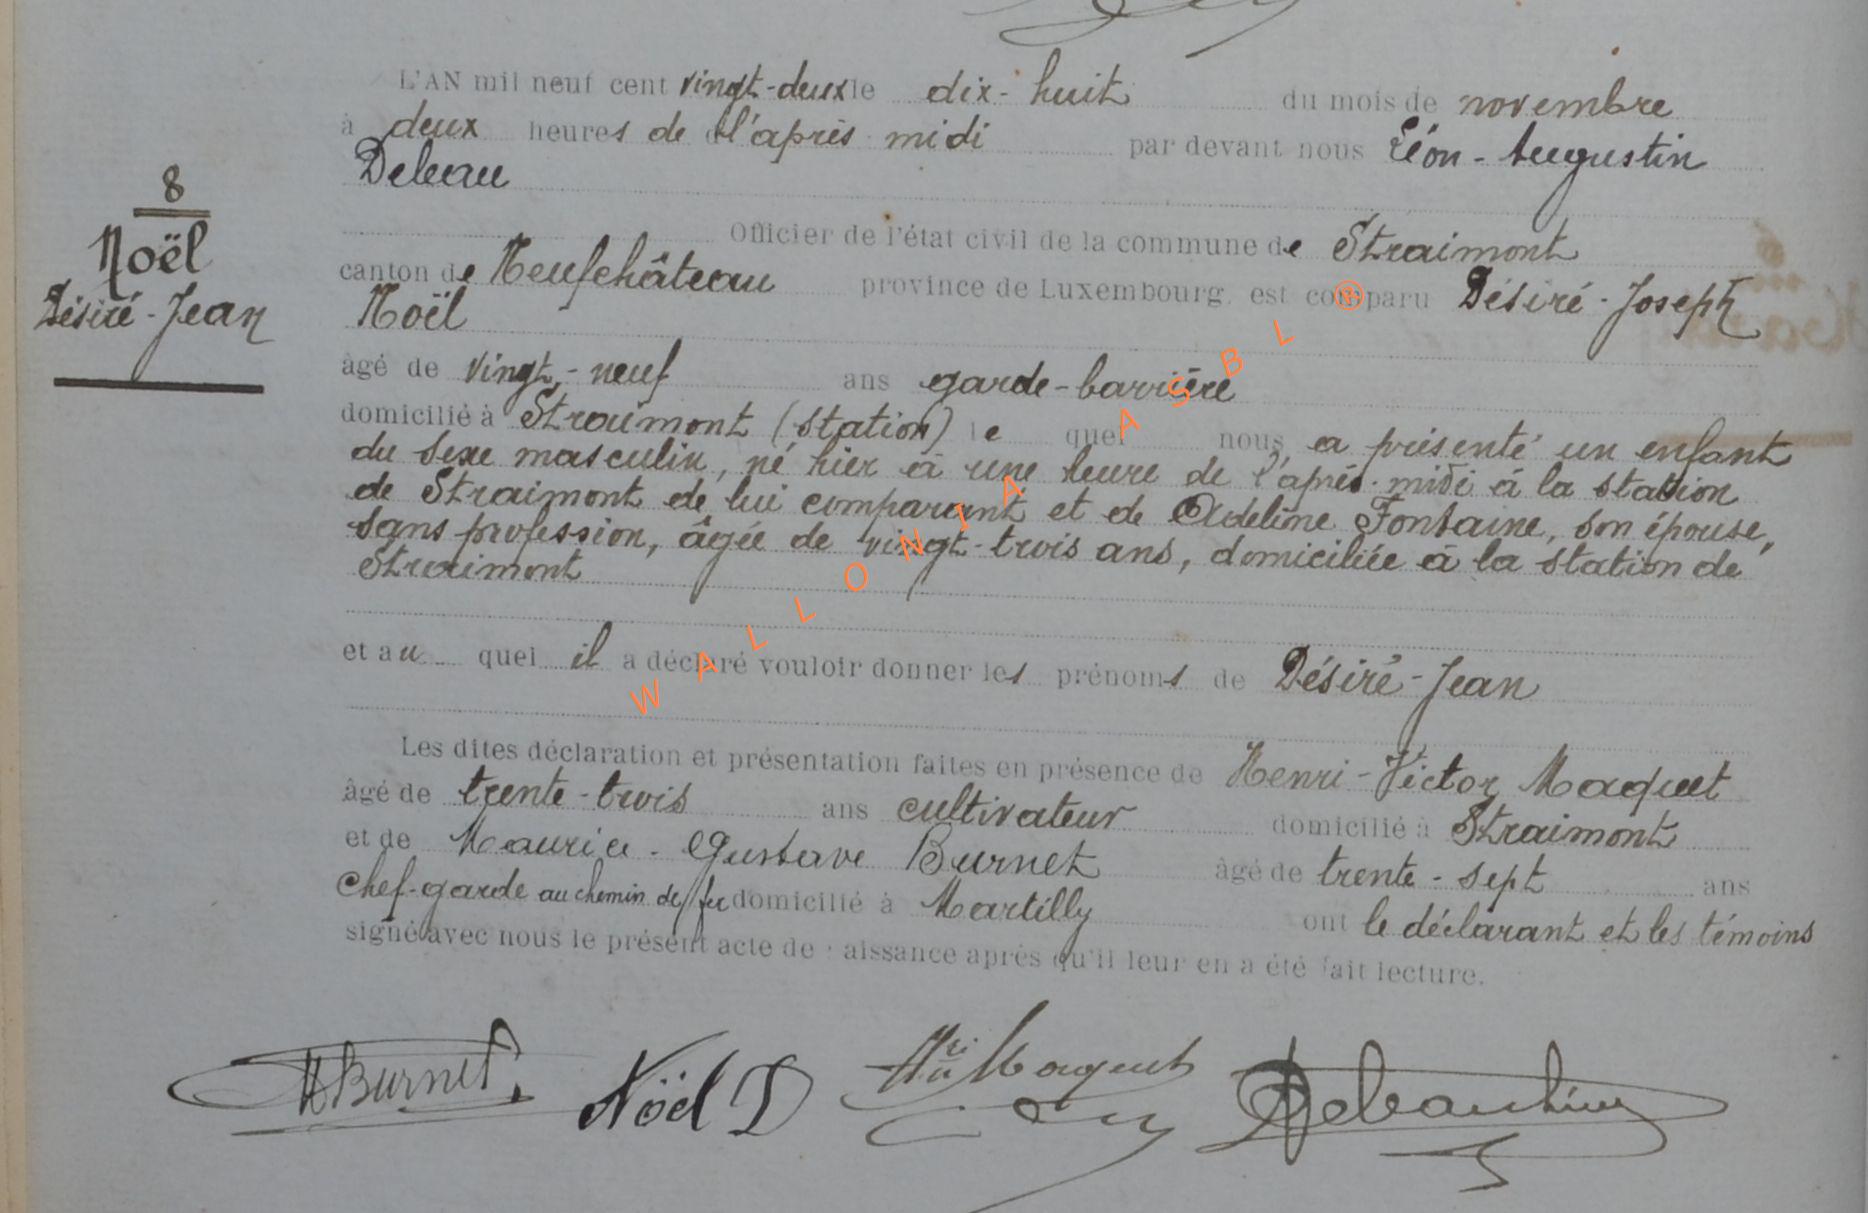 8
Noël
Désiré-Jean
L'AN mil neuf cent vingt-deux le dix-huit du mois de novembre
à deux heures de l'après-midi par devant nous Léon-Augustin
Deleau
Officier de l'état civil de la commune de Straimont
canton de Neufchâteau province de Luxembourg, est comparu Désiré-Joseph
Noël
âgé de vingt-neuf ans garde-barrière
domicilié à Straimont (station) lequel nous a présenté un enfant
du sexe masculin, né hier à une heure de l'après-midi à la station
de Straimont de lui comparant et de Adeline Fontaine, son épouse,
sans profession, âgée de vingt-trois ans, domiciliée à la station de
Straimont
et au quel il a déclaré vouloir donner les prénoms de Désiré-Jean
Les dites déclaration et présentation faites en présence de Henri-Victor Maquet
âgé de trente-trois ans cultivateur domicilié à Straimont
et de Maurice-Gustave Burnet âgé de trente-sept ans
chef-garde au chemin de fer domicilié à Martilly ont le déclarant et les témoins
signé avec nous le présent acte de naissance après qu'il leur en a été fait lecture.
MBurnet. Noël D Hri Maquet
WALLONIA ASBL ®